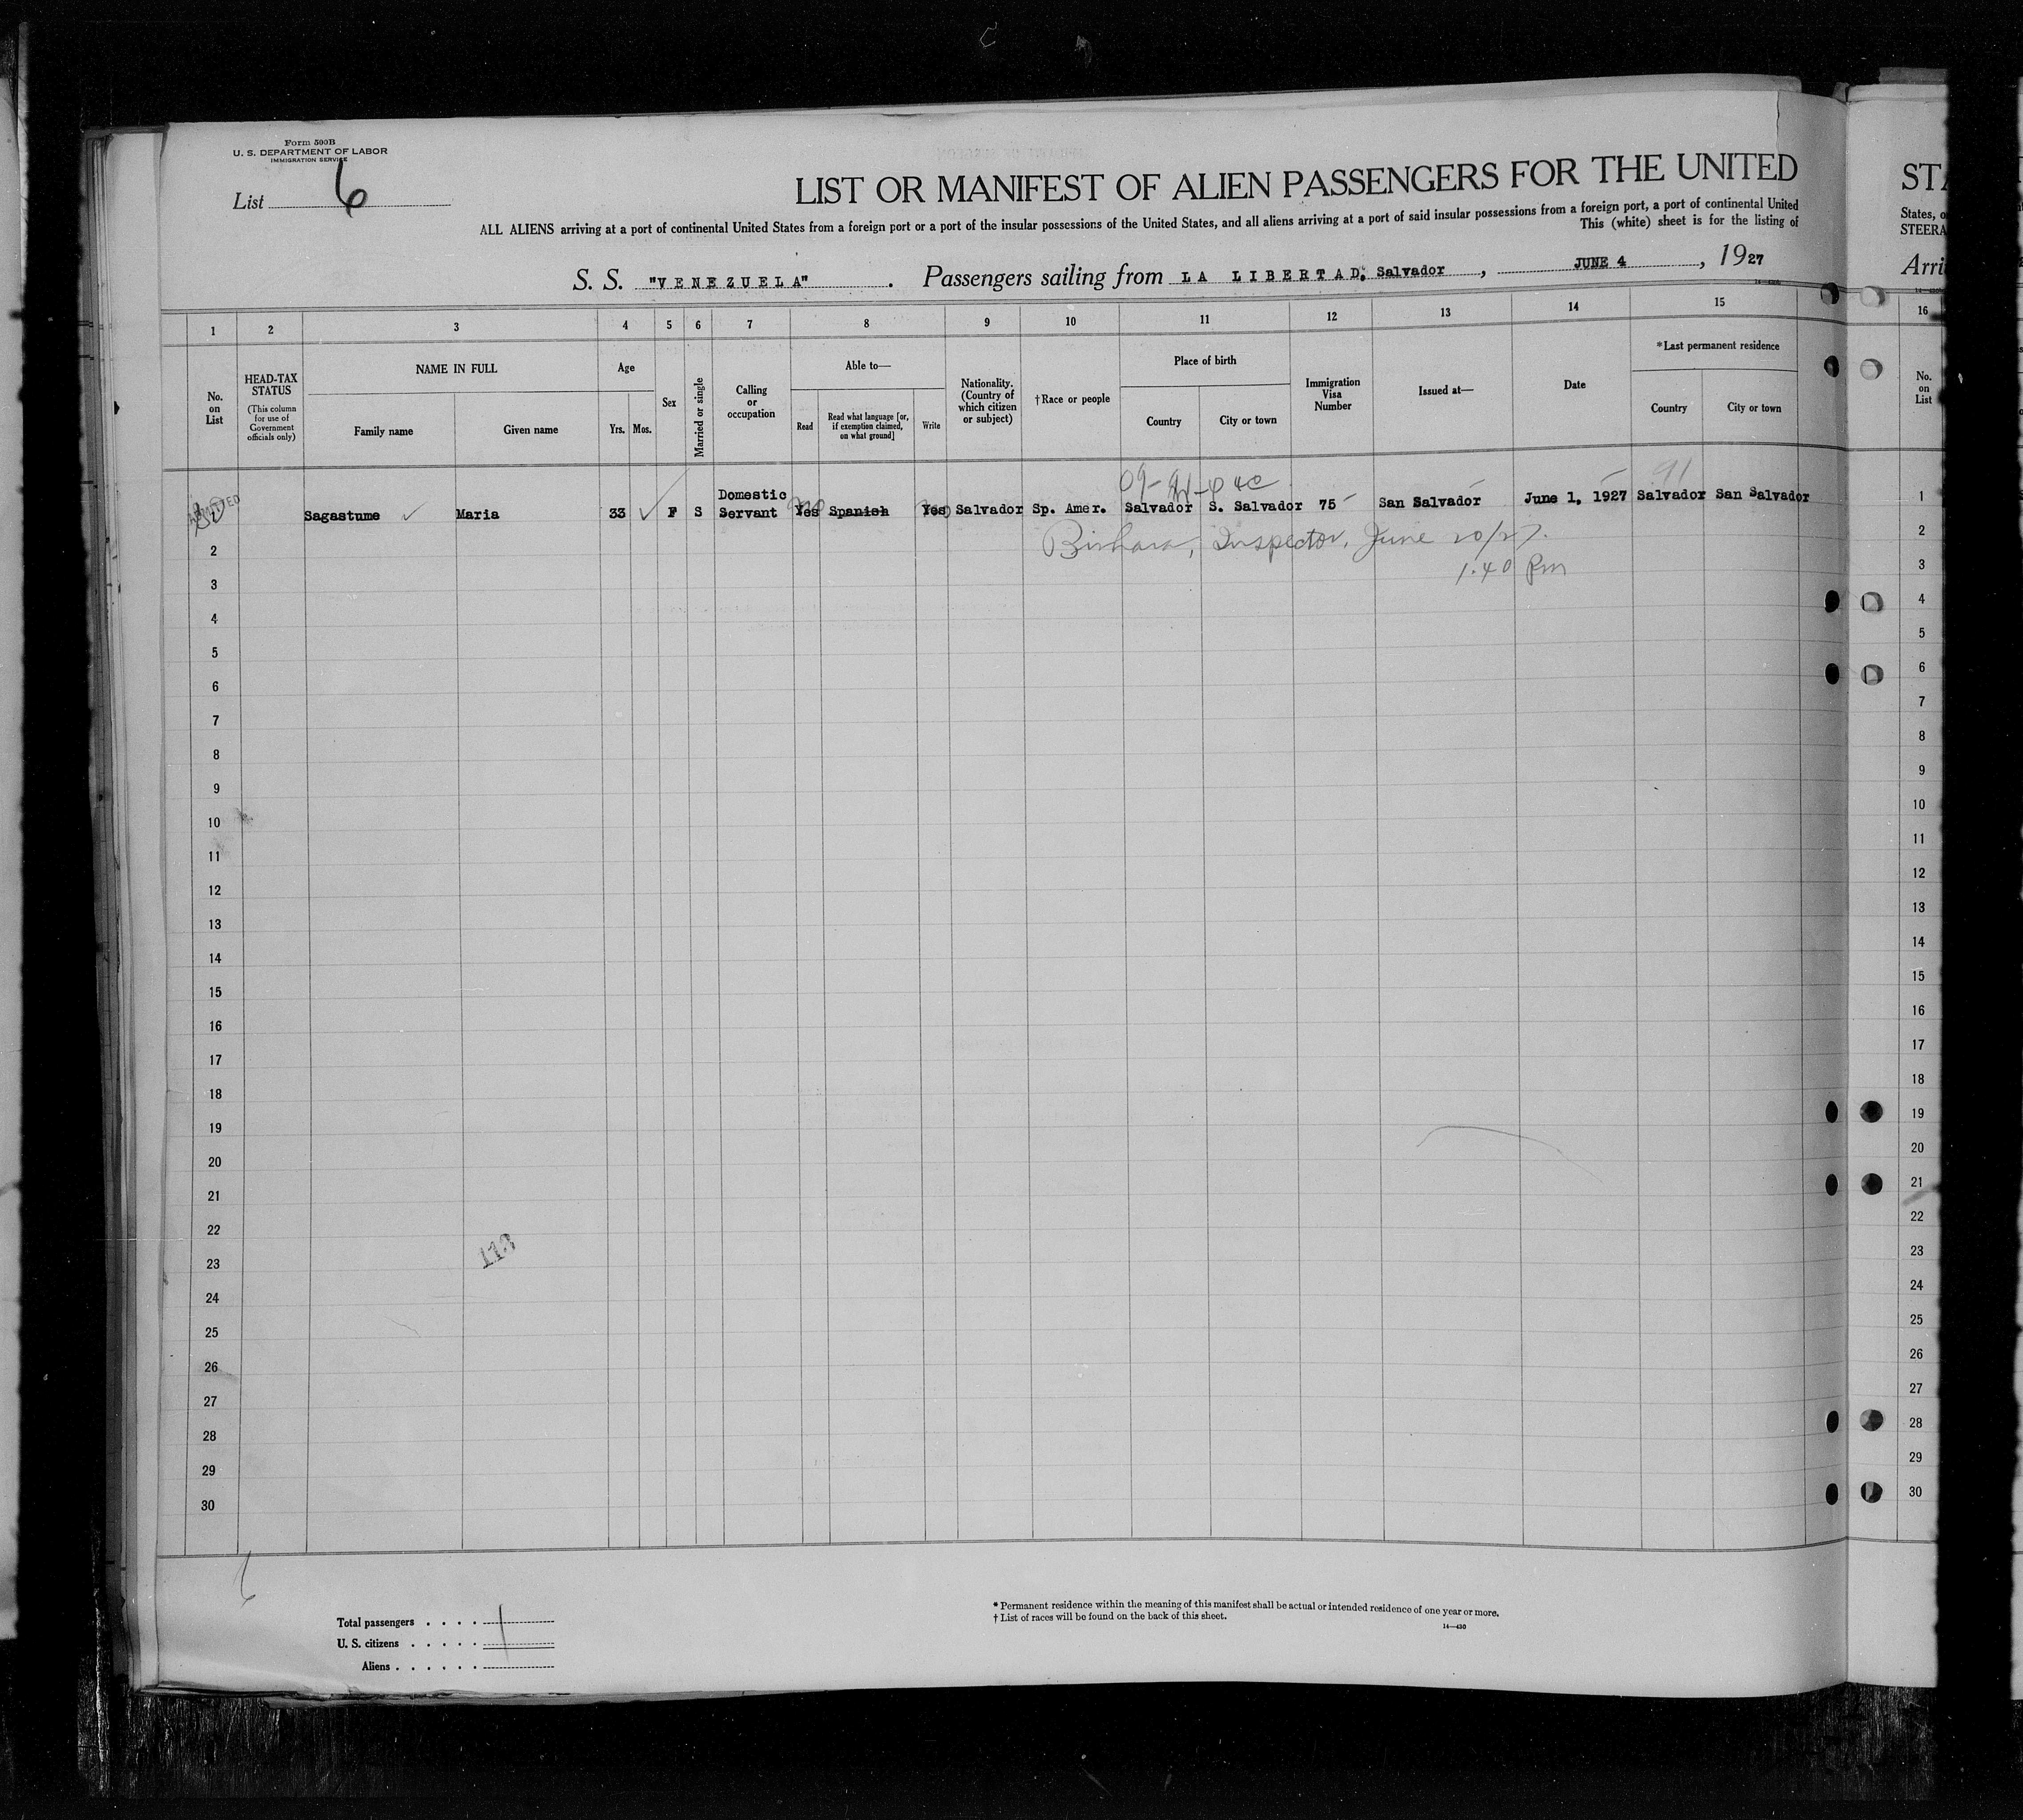 Form 500B
U. S. DEPARTMENT OF LABOR
IMMIGRATION SERVICE
List 6
LIST OR MANIFEST OF ALIEN PASSENGERS FOR THE UNITED
ALL ALIENS arriving at a port of continental United States from a foreign port or a port of the insular possessions of the United States, and all aliens arriving at a port of said insular possessions from a foreign port, a port of continental United
This (white) sheet is for the listing of
S. S. "VENEZUELA". Passengers sailing from LA LIBERTAD, Salvador, JUNE 4, 1927
1 2 3 4 5 6 7 8 9 10 11 12 13 14 15
No. on List
HEAD-TAX STATUS
(This column for use of Government officials only)
NAME IN FULL
Family name
Given name
Age
Yrs. Mos.
Sex
Married or single
Calling or occupation
Able to—
Read
Read what language [or, if exemption claimed, on what ground]
Write
Nationality. (Country of which citizen or subject)
†Race or people
Place of birth
Country
City or town
Immigration Visa Number
Issued at—
Date
*Last permanent residence
Country
City or town
91
1 ADMITTED Sagastume Maria 33 F S Domestic Servant Yes no Spanish Yes Salvador Sp. Amer. Salvador S. Salvador 75 San Salvador June 1, 1927 Salvador San Salvador
2 Inspector, June 20/27.
3 1.40 Pm
4
5
6
7
8
9
10
11
12
13
14
15
16
17
18
19
20
21
22
23
113
24
25
26
27
28
29
30
6
Total passengers 1
U. S. citizens
Aliens
* Permanent residence within the meaning of this manifest shall be actual or intended residence of one year or more.
† List of races will be found on the back of this sheet.
14—430
STA
States, o
STEERA
Arri
16
No. on List
1
2
3
4
5
6
7
8
9
10
11
12
13
14
15
16
17
18
19
20
21
22
23
24
25
26
27
28
29
30